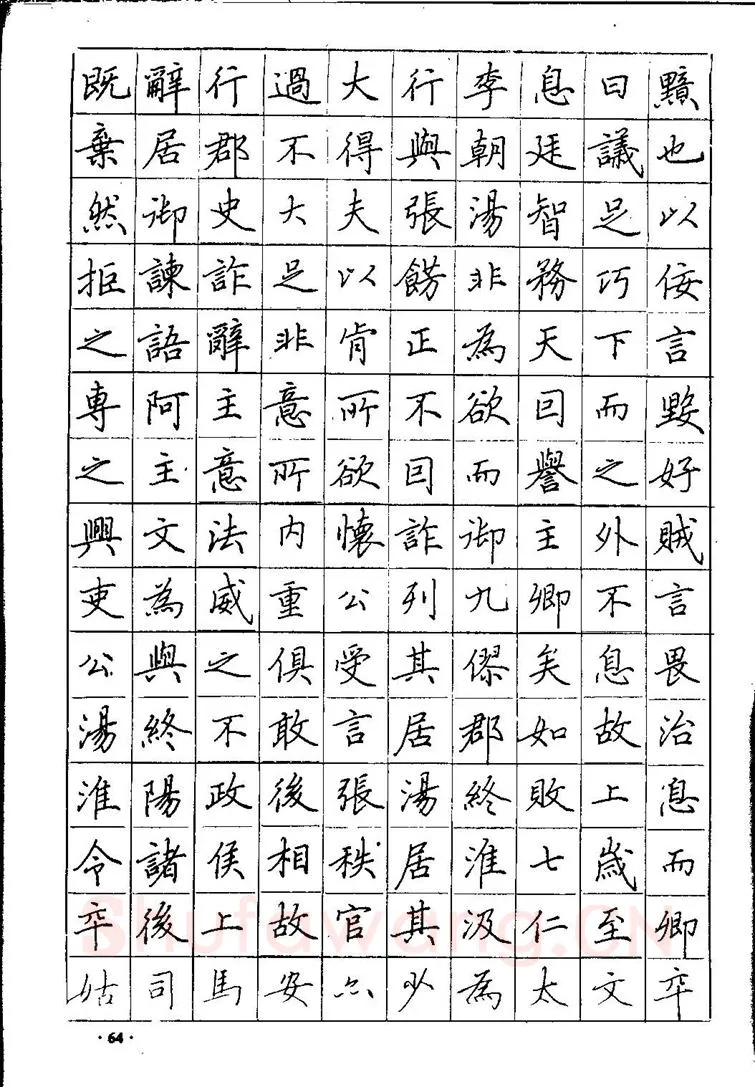 既辭行過大行李息曰黯
棄居郡不得與朝廷議也
然御史大夫張湯智足以
拒諫詐足以餝非務巧佞
之語辭非肯正為天下言
專阿主意所不欲囙而毀
之主意所欲囙而譽之好
興文法內懷詐御主外賊
吏為威重公列九卿不言
公與之俱受其僇矣息畏
湯終不敢言居郡如故治
淮陽政後張湯終敗上息
令諸侯相秩居淮七歲而
卒後上故官其汲仁至卿
姑司馬安亦少為太文卒
·64·
Shufawang.CN